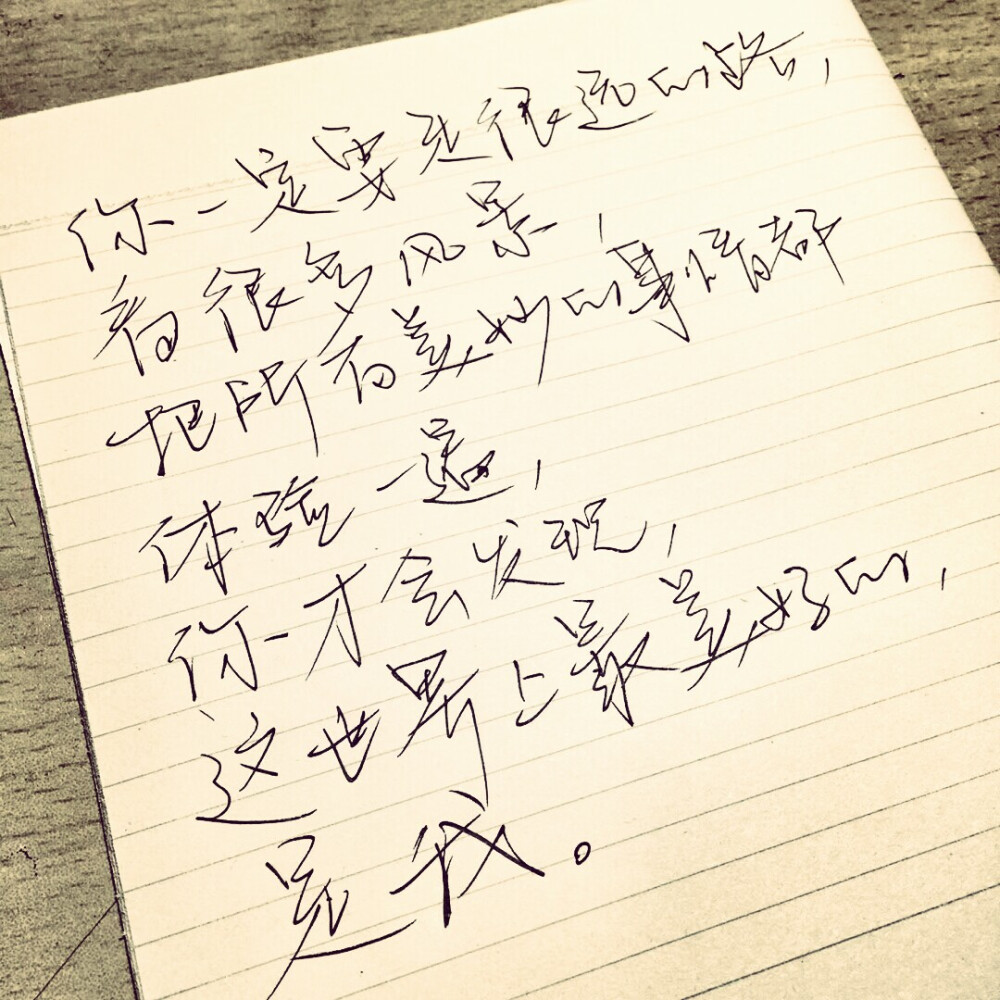 你一定要走很远的路，
看很多风景，
把所有美妙的事情都
体验一遍，
你才会发现，
这世界上最美好的，
是我。